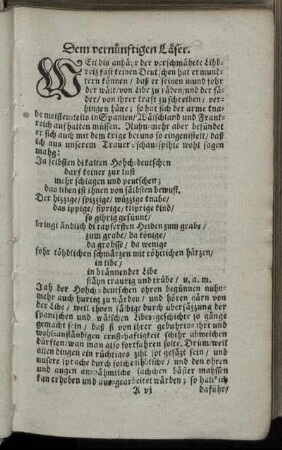 Dem vernünftigen Läser.
WEil bis anhähr der verschmähete Lihb-
reiz fast keinen Deutschen hat ermun-
tern können / daß er seinen mund sohr
der wält / von Libe zu räden / und der fä-
der / von ihrer kraft zu schreiben / ver-
hingen hätte; so hat sich der arme kna-
be meistenteils in Spanien / Wälschland und Frank-
reich aufhalten müssen. Nuhn-mehr aber befündet
er sich auch mit dem krige bei uns so eingenistelt / daß
sich aus unserem Trauer-schau-spihle wohl sagen
mahg:
In
di kalten Hohch-deutschen
darf keiner zur lust
mehr schlagen und peutschen;
das liben ist ihnen von sälbsten bewust.
Der hizzige / spizzige / wüzzige knabe /
das üppige / kind /
so gihrig gesünnt /
bringt ändlich di tapfersten Helden zum grabe /
zum grabe / da könige /
da grohsse / da wenige
fohr töhdlichen schmärzen mit röhtlichen härzen /
in libe /
in brännender Libe
stähn traurig und trübe / u. a. m.
Jah der Hohch-deutschen ohren begünnen nuhn-
mehr auch hurtig zu wärden / und hören gärn von
der Libe / weil ihnen sähbige durch übersäzzung der
spanischen und wälschen Libes-geschichte so gänge
gemacht sein / daß si von ihrer gebuhrts-ahrt und
wohl-anständigen ernsthaftigkeit schihr abweichen
dürften / wan man also fortfahren solte. Drüm / weil
allen dingen ein rüchtiges zihl gesäzt sein / und
unsere sprache durch solche libliche / und den ohren
und augen an-nähmliche sachchen bäster mahssen
kan erhoben und aus-gearbeitet wärden; so halt' ich
A vj dafuhr /